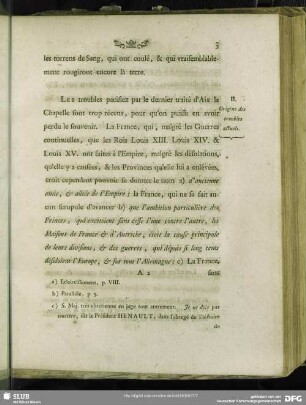 3
les torrens de Sang, qui ont coulé, & qui vraisemblable-
ment rougiront encore la terre.
II.
Origine des
troubles
actuels.
Les troubles pacifiez par le dernier traité d'Aix la
Chapelle sont trop récens, pour qu'on puisse en avoir
perdu le souvenir. La France, qui, malgré les Guerres
continuelles, que les Rois Louis XIII. Louis XIV. &
Louis XV. ont faites à l'Empire, malgré les désolations,
qu'elle y a causées, & les Provinces qu'elle lui a enlévées,
croit cependant pouvoir se donner le nom a) d'ancienne
amie, & alliée de l'Empire; la France, qui ne se fait au-
cun scrupule d'avancer b) que l'ambition particulière des
Princes, qui excitoient sans cesse l'une contre l'autre, les
Maisons de France & d'Autriche, étoit la cause principale
de leurs divisions, & des guerres, qui dépuis si long tems
désoloient l'Europe, & sur tout l'Allemagne: c) La France,
A 2 sans
a) Eclaircissement. p. VIII.
b) Parallèle. p. 5.
c) S. Maj. très chrétienne en juge tout autrement. Je ne dois pas
omettre, dit le Président HENAULT, dans l'abregé de l'histoire
de
SLUB
Wir führen Wissen.
http://digital.slub-dresden.de/
gefördert von der
Deutschen Forschungsgemeinschaft
DFG